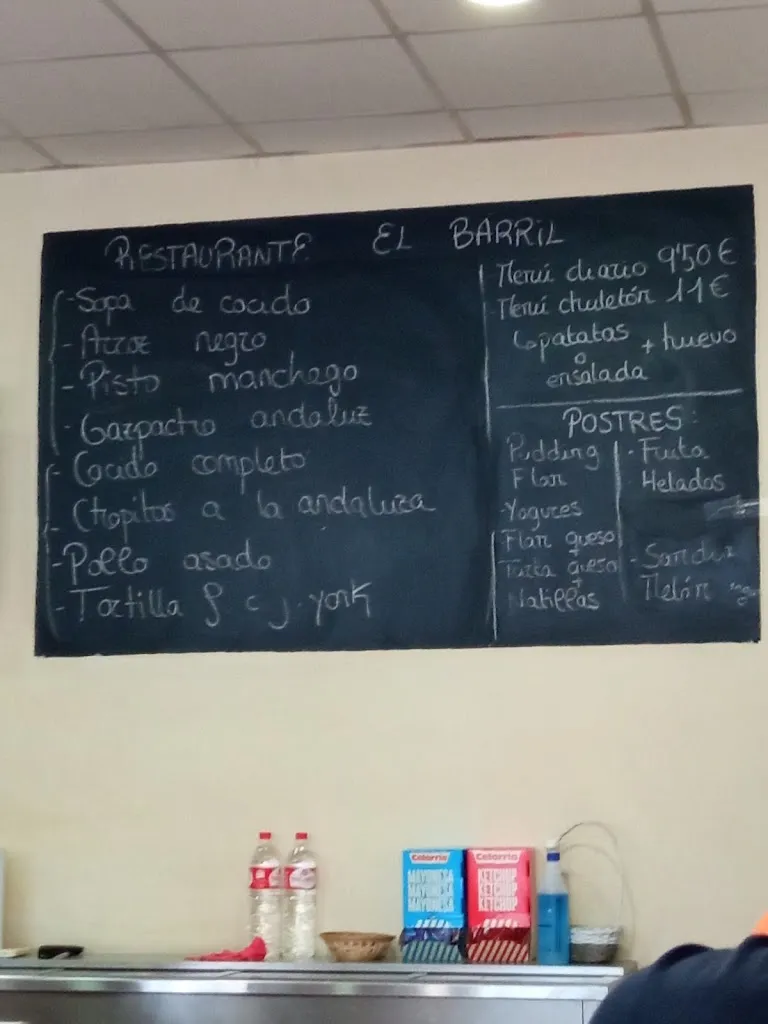 RESTAURANTE EL BARRIL
- Sopa de cocido
- Arroz negro
- Pisto manchego
- Gazpacho andaluz
- Cocido completo
- Chopitos a la andaluza
- Pollo asado
- Tortilla f c j. york
Menú diario 9'50 €
Menú chuletón 11 €
patatas + huevo
o
ensalada
POSTRES:
Pudding
Flan
- Yogures
Flan queso
+
Tarta queso
+
Natillas
- Fruta
- Helados
- Sandía
Melón
Celorrio
MAYONESA
MAYONESA
MAYONESA
Celorrio
KETCHUP
KETCHUP
KETCHUP